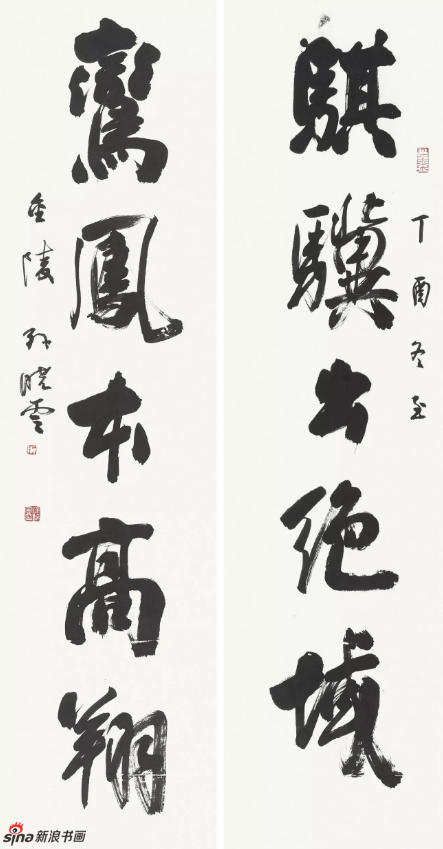 騏驥出绝域
丁酉冬至
鸞鳳本高翔
金陵 孙晓云
sina 新浪书画